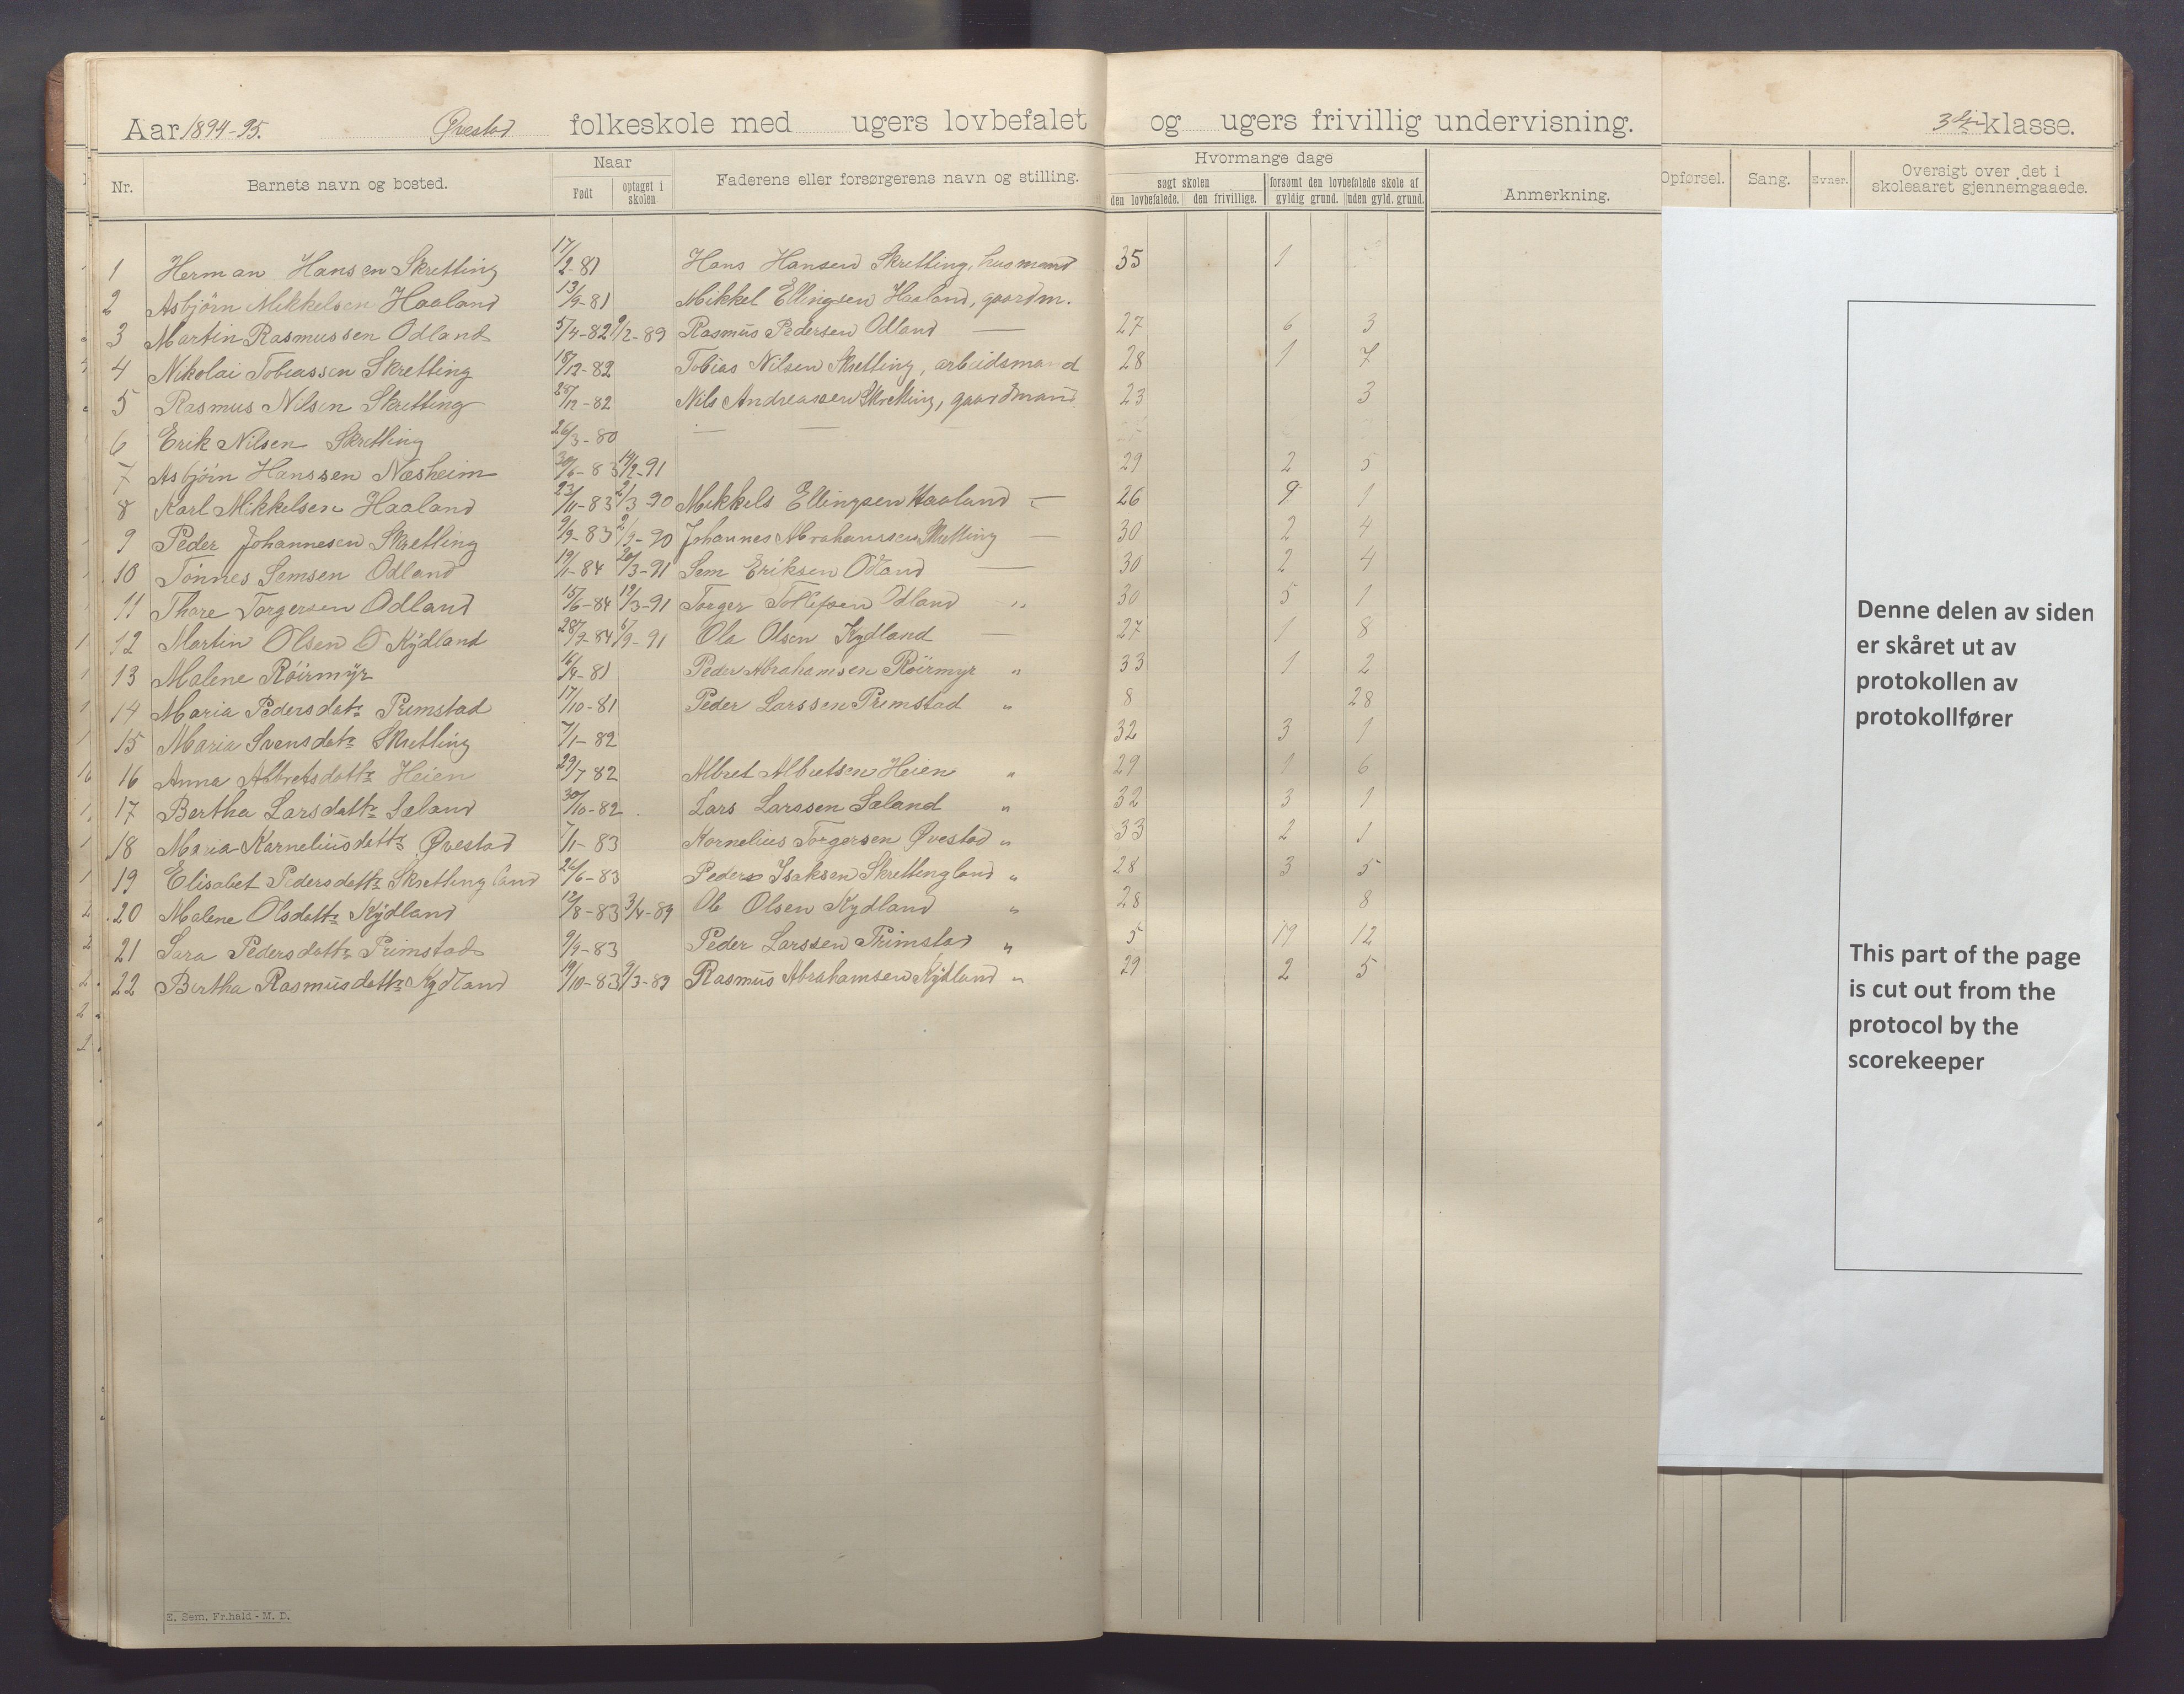 Aar 1894-95. Øvestad folkeskole med ugers lovbefalet og ugers frivillig undervisning. 3die klasse.
Nr. Barnets navn og bosted. Naar Født optaget i skolen Faderens eller forsørgerens navn og stilling. Hvormange dage søgt skolen den lovbefalede. den frivillige. forsømt den lovbefalede skole af gyldig grund. uden gyld. grund. Anmerkning. Opførsel. Sang. Evner. Oversigt over det i skoleaaret gjennemgaaede.
1 Herman Hansen Skretting 17/2-81 Hans Hansen Skretting, husmand 35 1
2 Asbjörn Mikkelsen Haaland 13/9-81 Mikkel Ellingsen Haaland, gaardm.
3 Martin Rasmussen Odland 5/4-82 9/2-89 Rasmus Pedersen Odland — 27 6 3
4 Nikolai Tobiassen Skretting 18/12-82 Tobias Nilsen Skretting, arbeidsmand 28 1 7
5 Rasmus Nilsen Skretting 28/12-82 Nils Andreassen Skretting, gaardmand 23 3
6 Erik Nilsen Skretting 26/3-80 — —
7 Asbjörn Hanssen Næsheim 30/6-83 14/2-91 29 2 5
8 Karl Mikkelsen Haaland 23/11-83 2/3-90 Mikkels Ellingsen Haaland — 26 9 1
9 Peder Johannesen Skretting 9/9-83 2/9-90 Johannes Abrahamssen Skretting — 30 2 4
10 Tönnes Semsen Odland 19/1-84 20/3-91 Sem Eriksen Odland — 30 2 4
11 Thore Torgersen Odland 15/6-84 19/3-91 Torger Tollefsen Odland " 30 5 1
12 Martin Olsen Kÿdland 28/9-84 6/9-91 Ola Olsen Kydland — 27 1 8
13 Malene Röirmÿr 16/4-81 Peder Abrahamsen Röirmyr " 33 1 2
14 Maria Pedersdatr Primstad 17/10-81 Peder Larssen Primstad " 8 28
15 Maria Svensdatr Skretting 7/1-82 32 3 1
16 Anna Albretsdattr Heien 29/7 82 Albret Albretsen Heien " 29 1 6
17 Bertha Larsdattr Sæland 30/10-82 Lars Larssen Sæland " 32 3 1
18 Maria Korneliusdattr Øvestad 7/1-83 Kornelius Torgersen Øvestad " 33 2 1
19 Elisabet Pedersdattr Skrettingland 26/6-83 Peder Isaksen Skrettingland " 28 3 5
20 Malene Olsdattr Kÿdland 12/8-83 3/4-89 Ole Olsen Kydland " 28 8
21 Sara Pedersdattr Primstad 9/9-83 Peder Larssen Primstad " 5 19 12
22 Bertha Rasmusdattr Kydland 19/10-83 9/3-89 Rasmus Abrahamsen Kÿdland " 29 2 5
E. Sem, Fr.hald - M. D.
Denne delen av siden
er skåret ut av
protokollen av
protokollfører
This part of the page
is cut out from the
protocol by the
scorekeeper